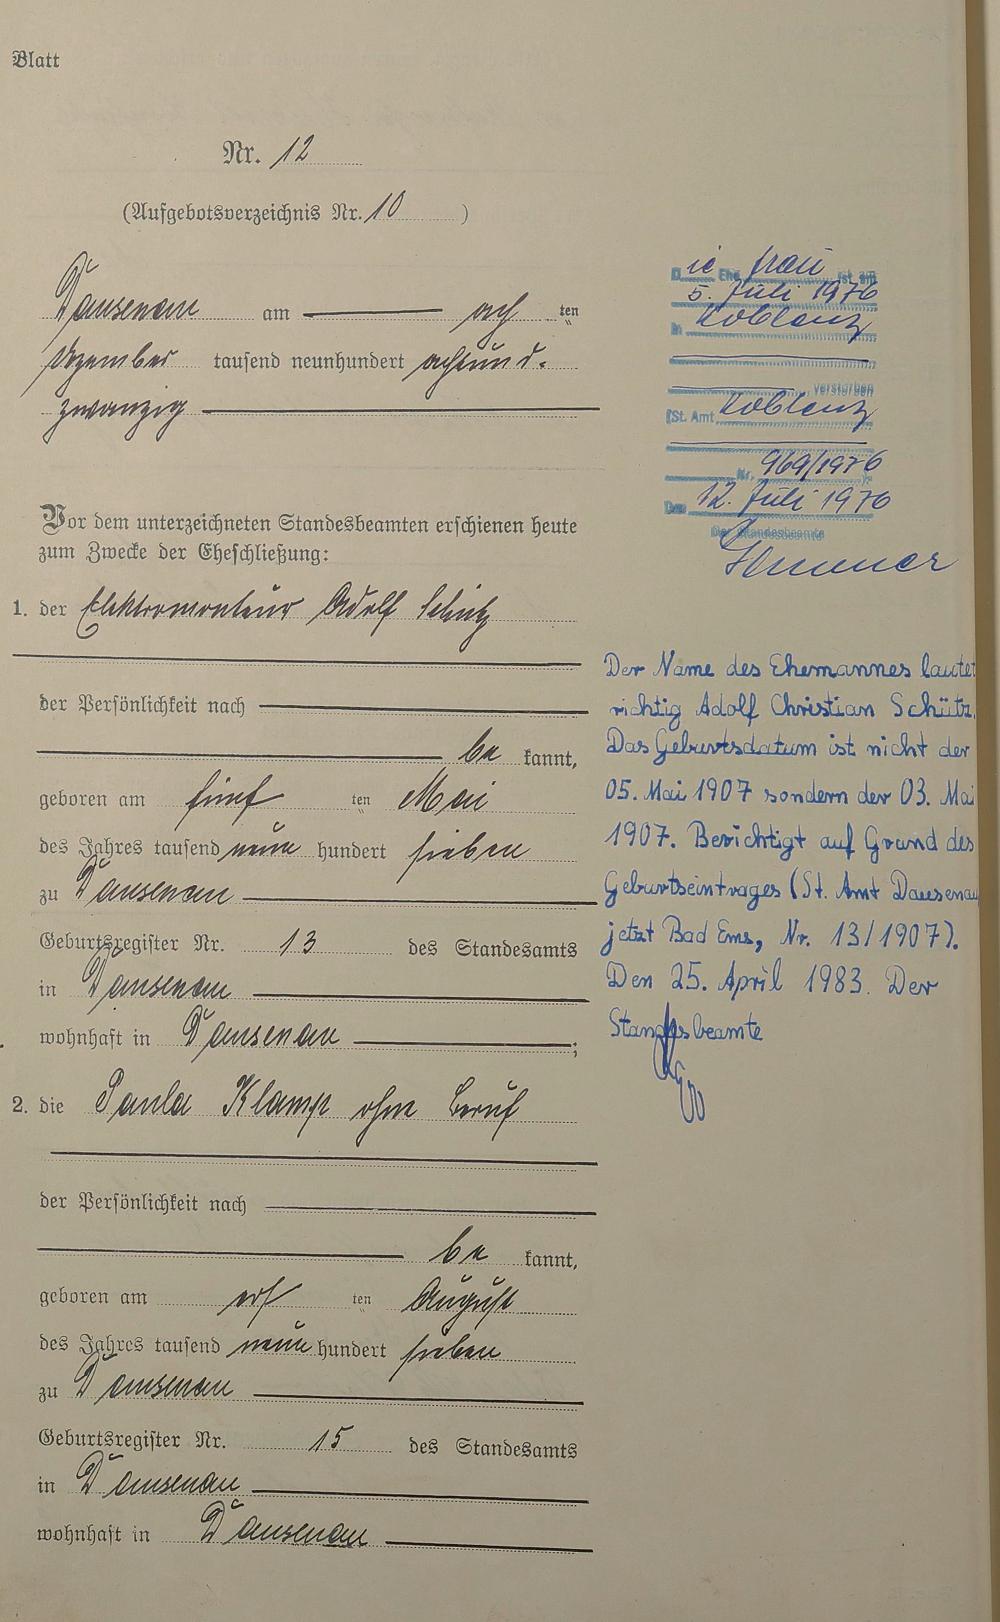 Blatt
Nr. 12
(Aufgebotsverzeichnis Nr. 10 )
Dausenau am achten
Dezember tausend neunhundert achtund-
zwanzig
Vor dem unterzeichneten Standesbeamten erschienen heute
zum Zwecke der Eheschließung:
1. der Elektromonteur Adolf Schütz
der Persönlichkeit nach
be kannt,
geboren am fünf ten Mai
des Jahres tausend neun hundert sieben
zu Dausenau
Geburtsregister Nr. 13 des Standesamts
in Dausenau
wohnhaft in Dausenau ;
2. die Paula Klamp ohne Beruf
der Persönlichkeit nach
be kannt,
geboren am elf ten August
des Jahres tausend neun hundert sieben
zu Dausenau
Geburtsregister Nr. 15 des Standesamts
in Dausenau
wohnhaft in Dausenau
Die Ehefrau ist am
5. Juli 1976
in Koblenz
verstorben
(St. Amt Koblenz
Nr. 969/1976
Den 12. Juli 1976
Der Standesbeamte
Der Name des Ehemannes lautet
richtig Adolf Christian Schütz.
Das Geburtsdatum ist nicht der
05. Mai 1907 sondern der 03. Mai
1907. Berichtigt auf Grund des
Geburtseintrages (St. Amt Dausenau
jetzt Bad Ems, Nr. 13/1907).
Den 25. April 1983. Der
Standesbeamte